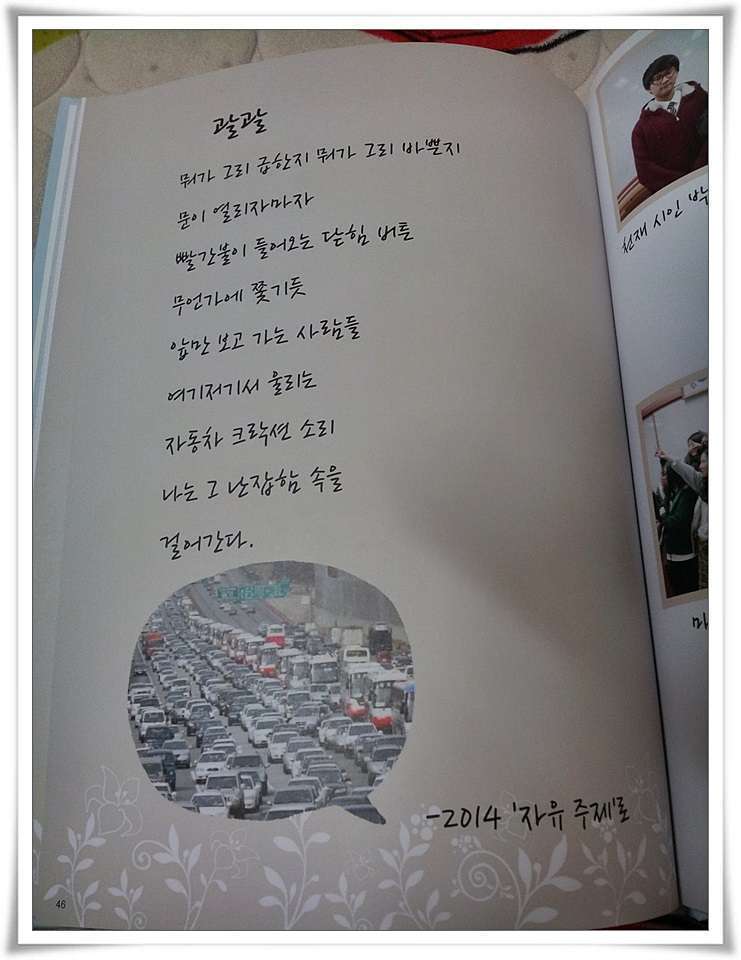 괄괄
뭐가 그리 급한지 뭐가 그리 바쁜지
문이 열리자마자
빨간불이 들어오는 닫힘 버튼
무언가에 쫓기듯
앞만 보고 가는 사람들
여기저기서 울리는
자동차 크락션 소리
나는 그 난잡함 속을
걸어간다.
-2014 '자유 주제'로
46
천재 시인 박
마